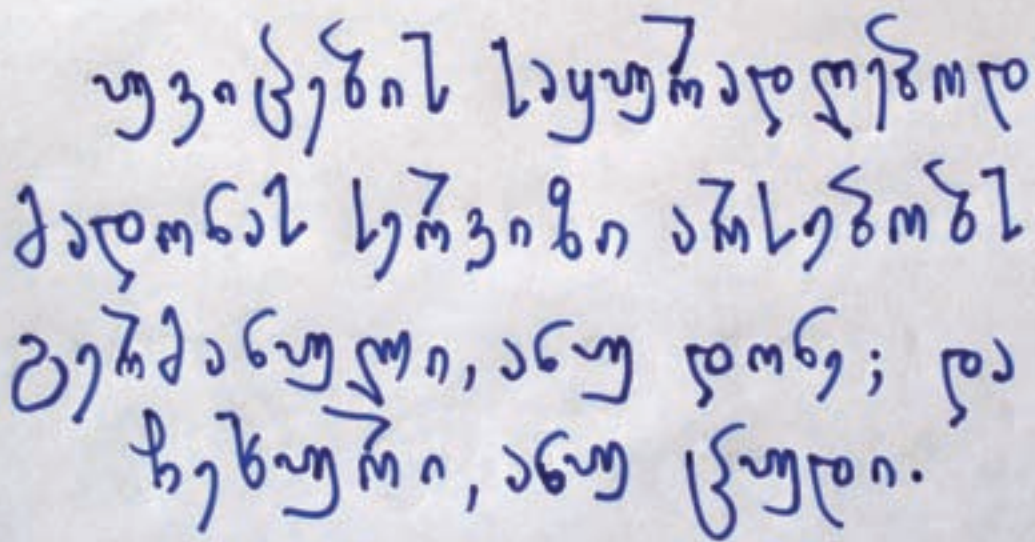 უვიცების საყურადღებოდ
მადონას სერვიზი არსებობს
გერმანული, ანუ დონე; და
ჩეხური, ანუ ცუდი.